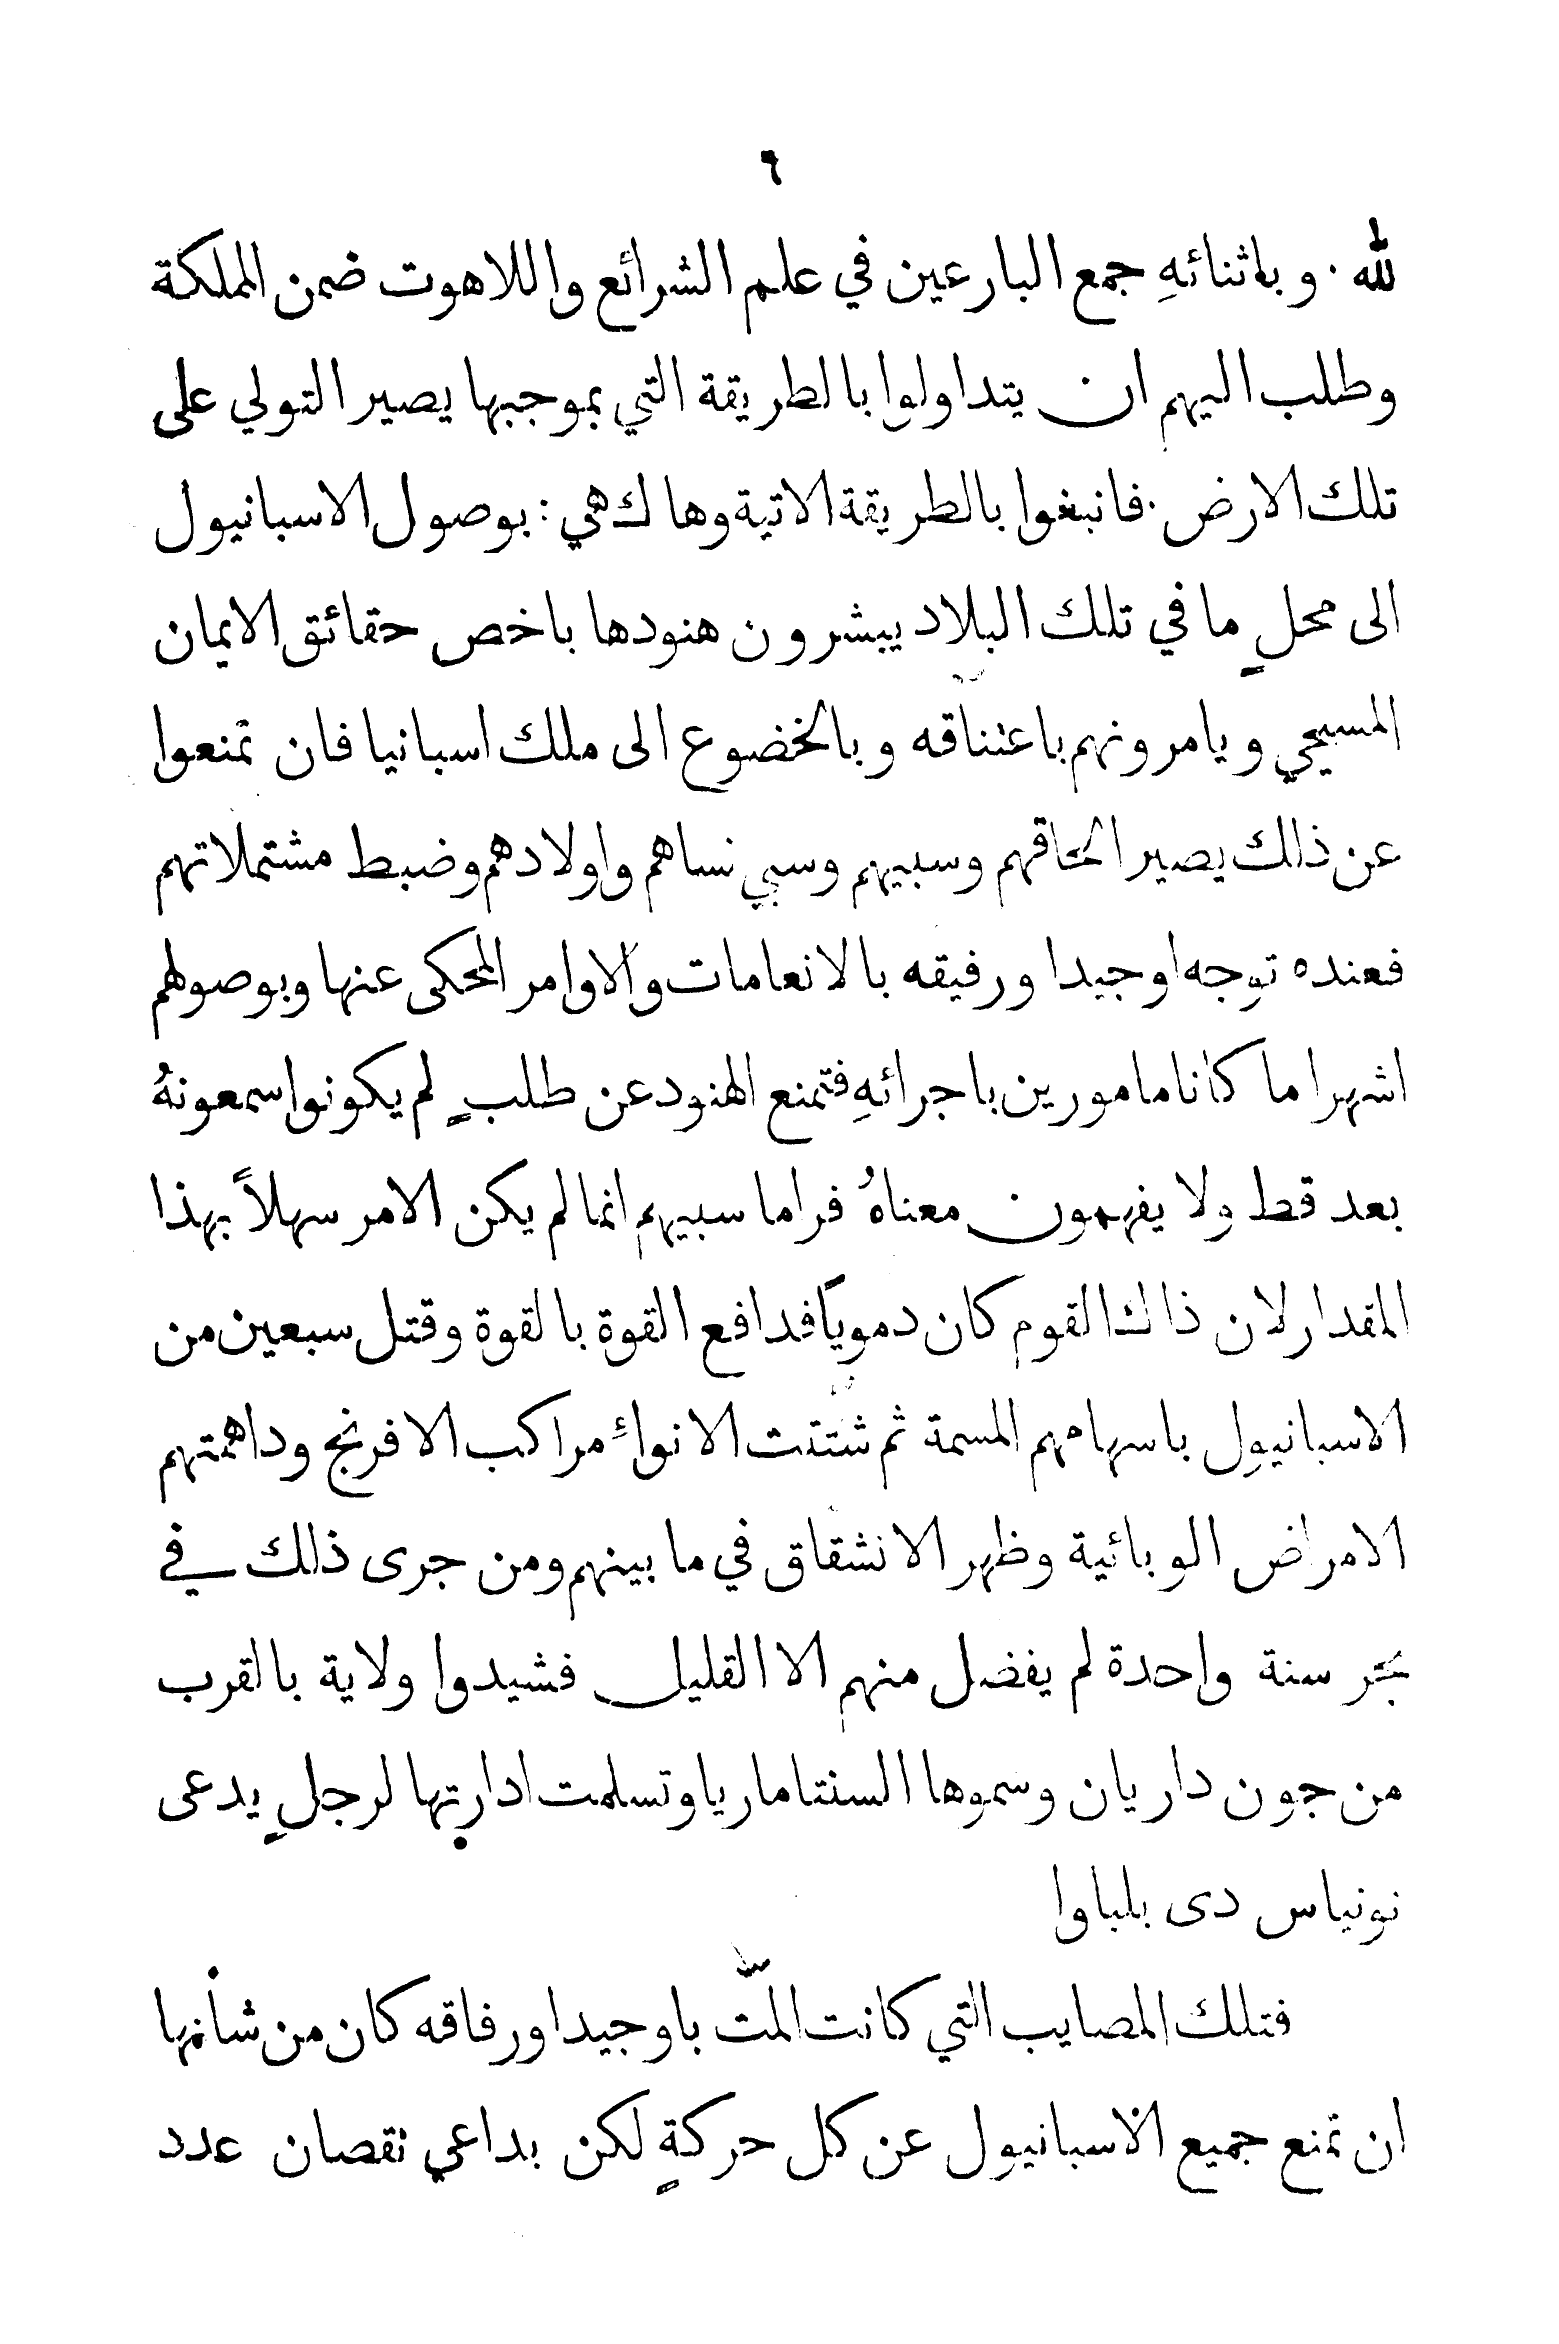 ٦
لله . وباثنائهِ جمع البارعين في علم الشرائع واللاهوت ضمن المملكة
وطلب اليهم ان يتداولوا بالطريقة التي بموجبها يصير التولي على
تلك الارض . فانبغوا بالطريقة الاتية وهاك هي : بوصول الاسبانيول
الى محلٍ ما في تلك البلاد يبشرون هنودها باخص حقائق الايمان
المسيحي ويامرونهم باعتناقه وبالخضوع الى ملك اسبانيا فان تمنعوا
عن ذلك يصير الحاقهم وسبيهم وسبي نساهم واولادهم وضبط مشتملاتهم
فعنده توجه اوجيدا ورفيقه بالانعامات والاوامر المحكى عنها وبوصولهم
اشهرا ما كانا مامورين باجرائهِ فتمنع الهنود عن طلبٍ لم يكونوا سمعونهُ
بعد قط ولا يفهمون معناهُ فراما سبيهم انما لم يكن الامر سهلاً بهذا
المقدار لان ذاك القوم كان دمويًا فدافع القوة بالقوة وقتل سبعين من
الاسبانيول باسهامهم المسمة ثم شتتت الانواءُ مراكب الافرنج وداهمتهم
الامراض الوبائية وظهر الانشقاق في ما بينهم ومن جرى ذلك في
بحر سنة واحدة لم يفضل منهم الا القليل فشيدوا ولاية بالقرب
من جون داريان وسموها السنتاماريا وتسلمت ادارتها لرجلٍ يدعى
نونياس دى بلباوا
فتلك المصايب التي كانت المّت باوجيدا ورفاقه كان من شأنها
ان تمنع جميع الاسبانيول عن كل حركةٍ لكن بداعي نقصان عدد